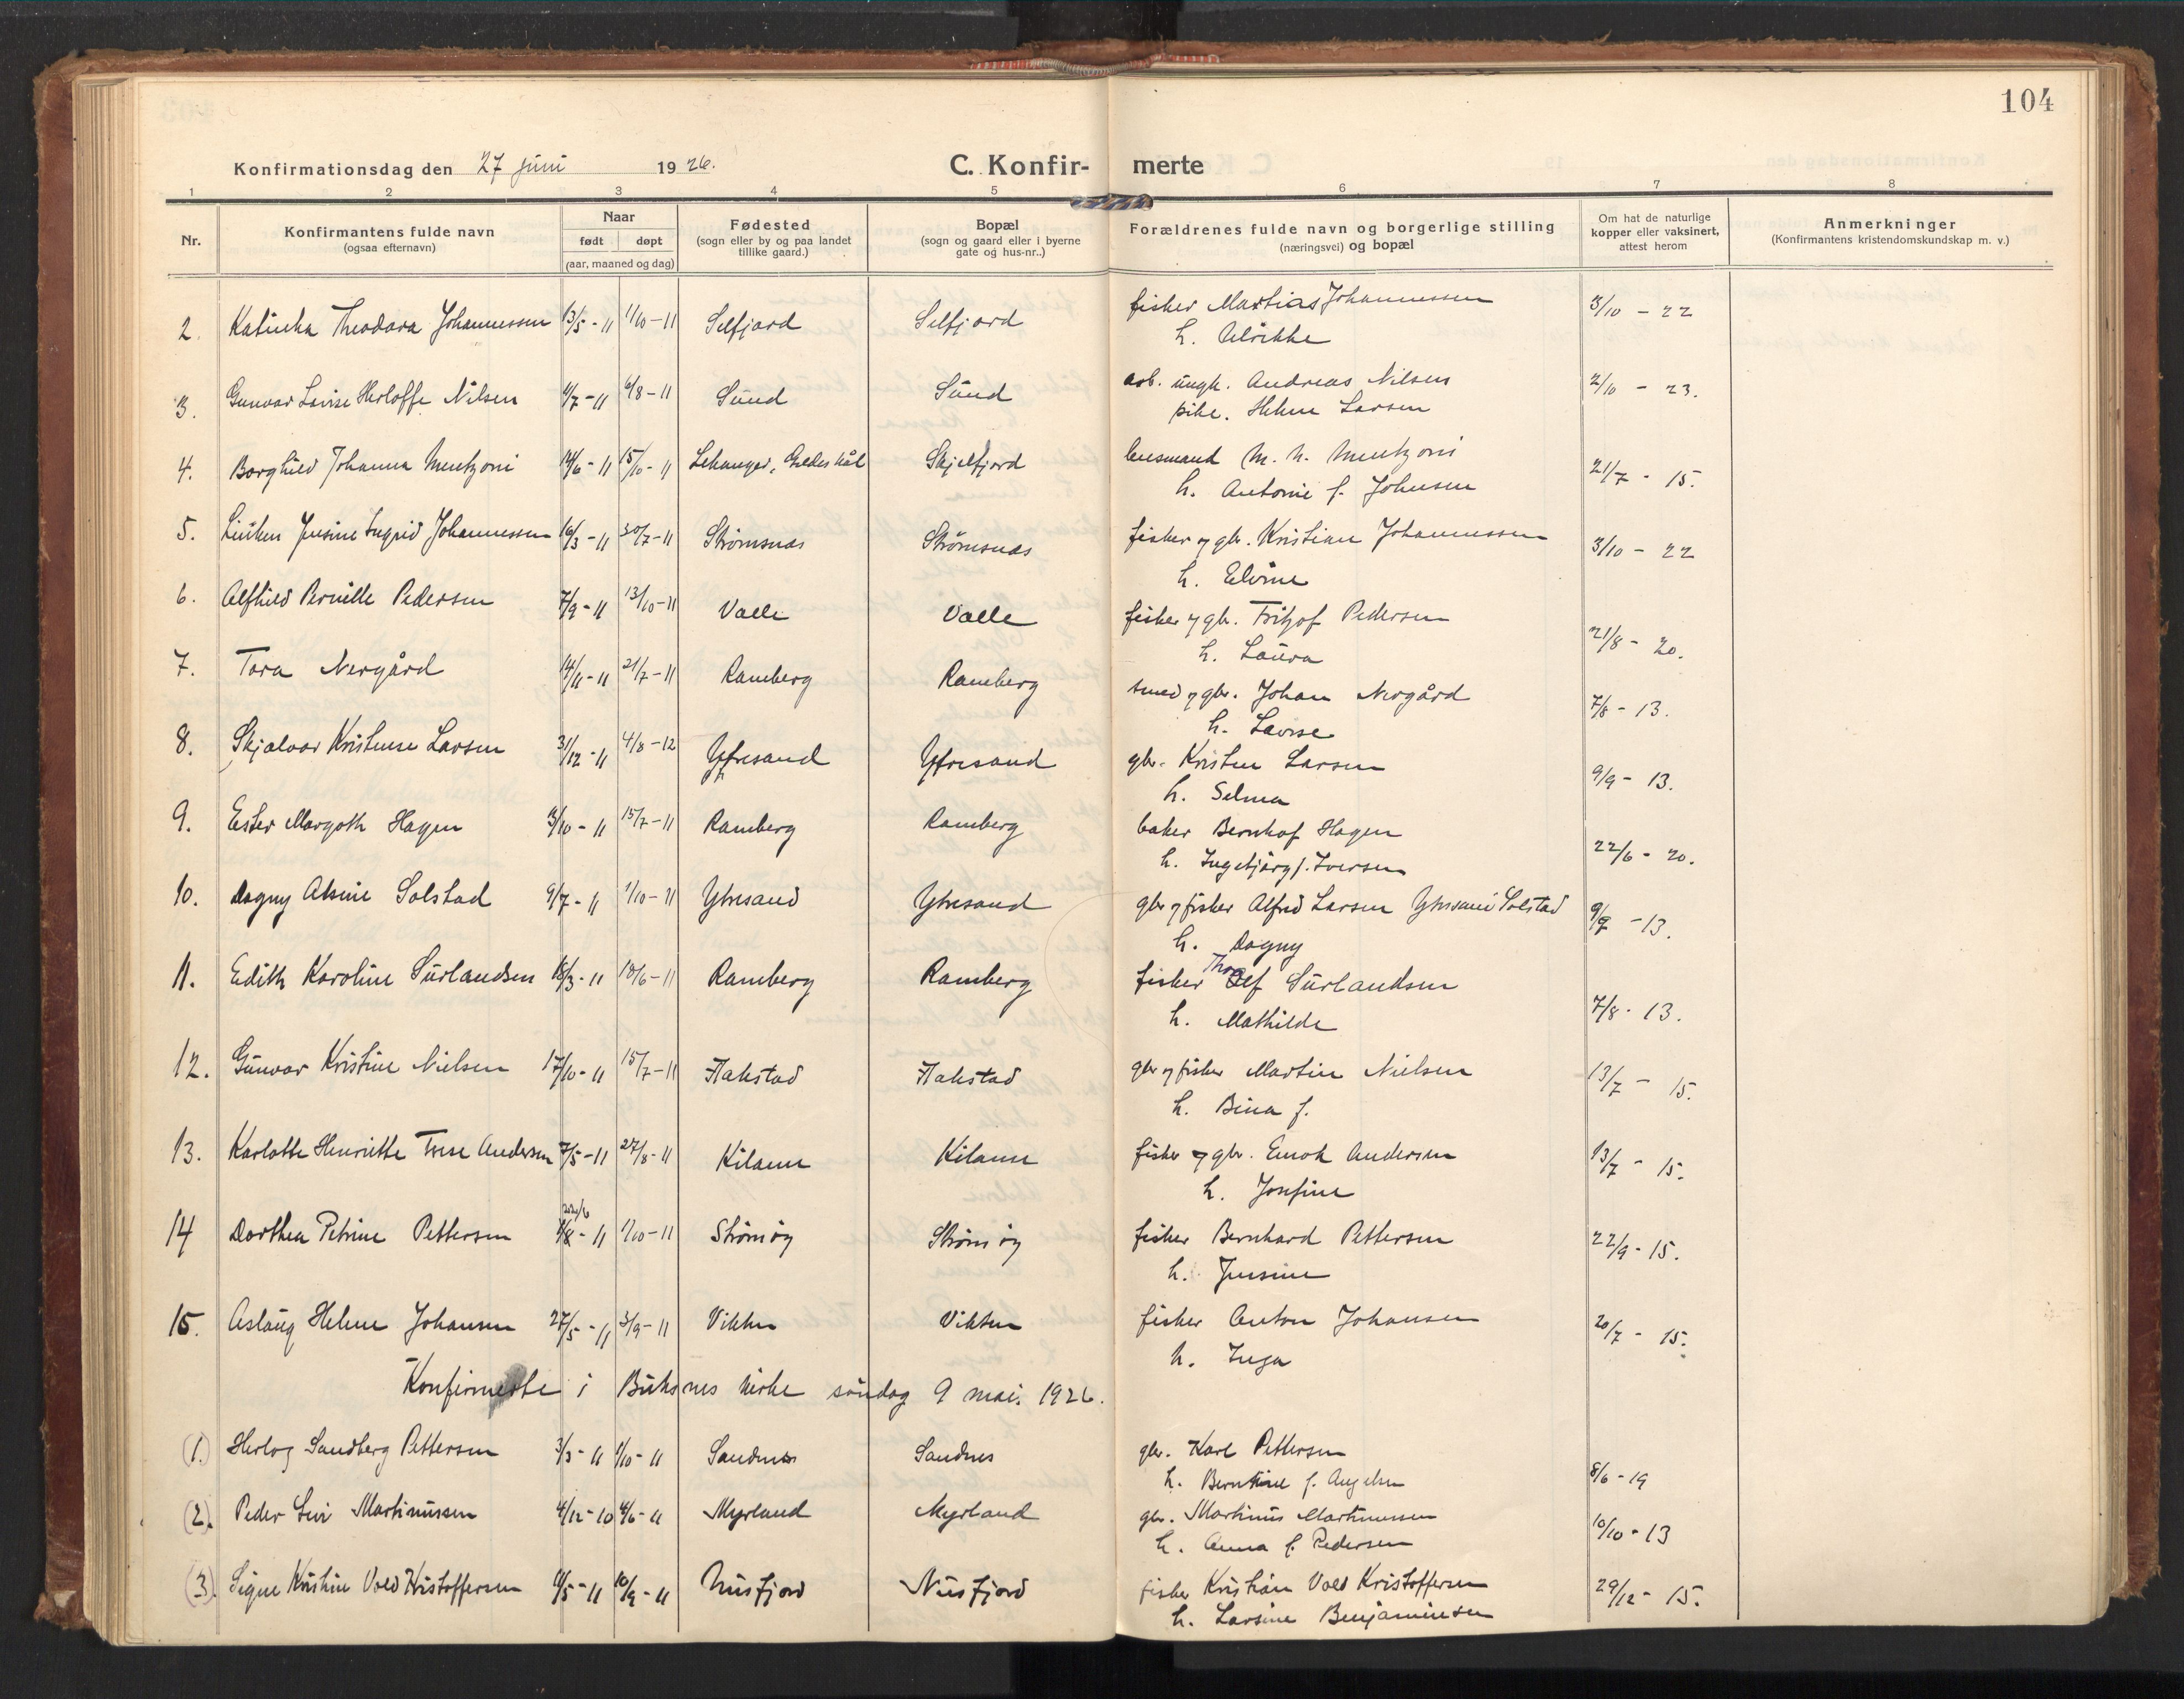 104
Konfirmationsdag den 27 juni 1926. C. Konfirmerte
1 2 3 4 5 6 7 8
Nr. Konfirmantens fulde navn (ogsaa efternavn) Naar født døpt (aar, maaned og dag) Fødested (sogn eller by og paa landet tillike gaard.) Bopæl (sogn og gaard eller i byerne gate og hus-nr..) Forældrenes fulde navn og borgerlige stilling (næringsvei) og bopæl Om hat de naturlige kopper eller vaksinert, attest herom Anmerkninger (Konfirmantens kristendomskundskap m. v.)
2. Katinka Theodora Johannessen 13/5 - 11 1/10 - 11 Selfjord Selfjord fisker Martias Johannessen 3/10 - 22
h. Ulrikke
3. Gunvor Lovise Herloffe Nilsen 4/7 - 11 6/8 - 11 Sund Sund arb. ungk. Andreas Nilsen 2/10 - 23.
pike. Helene Larsen
4. Borghild Johanna Mentzoni 14/6 - 11 15/10 - 11 Lekanger, Gildeskål Skjelfjord lensmand M. N. Mentzoni 21/7 - 15.
h. Antonie f. Johnsen
5. Jensine Ingrid Johannessen 16/3 - 11 30/7 - 11 Strømsnes Strømsnes fisker og gbr. Kristian Johannessen 3/10 - 22
h. Elvine
6. Alfhild Pernille Pedersen 7/9 - 11 13/10 - 11 Valle Valle fisker og gbr. Fritjof Pedersen 21/8 - 20.
h. Laura
7. Tora Nergård 14/4 - 11 21/7 - 11 Ramberg Ramberg smed og gbr. Johan Nergård 7/8 - 13.
h. Lovise
8. Skjalvor Kristense Larsen 31/12 - 11 4/8 - 12 Ytresand Ytresand gbr. Kristen Larsen 9/9 - 13.
h. Selma
9. Ester Margoth Hagen 3/10 - 11 15/7 - 11 Ramberg Ramberg baker Bernhof Hagen 22/6 - 20.
h. Ingebjørg f. Iversen
10. Dagny Alsine Solstad 9/7 - 11 1/10 - 11 Ytresand Ytresand gbr og fisker Alfred Larsen Solstad 9/9 - 13.
h. Dagny
11. Edith Karoline Surlandsen 18/3 - 11 18/6 - 11 Ramberg Ramberg fisker Tholf Surlandsen 7/8 - 13.
h. Mathilde
12. Gunvor Kristine Nielsen 17/10 - 11 15/7 - 11 Flakstad Flakstad gbr og fisker Martin Nielsen 13/7 - 15.
h. Bina f.
13. Karlotte Henriette Trese Andersen 7/5 - 11 27/8 - 11 Kilann Kilann fisker og gbr. Enok Andersen 13/7 - 15.
h. Josefine
14 Dorthea Petrine Pettersen 1/8 - 11 1/10 - 11 Strømøy Strømøy fisker Bernhard Pettersen 22/9 - 15.
h. Jensine
15. Aslaug Helene Johansen 27/5 - 11 3/9 - 11 Vikten Vikten fisker Anton Johansen 20/7 - 15.
h. Inga
Konfirmerte i Buksnes kirke søndag 9 mai. 1926.
(1.) Herlog Sandberg Pettersen 3/3 - 11 1/10 - 11 Sandnes Sandnes gbr. Karl Pettersen 8/6 - 19
h. Berntine f. Angelsen
(2). Peder Levi Martinussen 4/12 - 10 4/6 - 11 Myrland Myrland gbr. Martinus Martinussen 10/10 - 13
h. Anna f. Pedersen
(3). Signe Kristine Vold Kristoffersen 4/5 - 11 10/9 - 11 Nusfjord Nusfjord fisker Kristian Vold Kristoffersen 29/12 - 15.
h. Larsine Benjaminsen